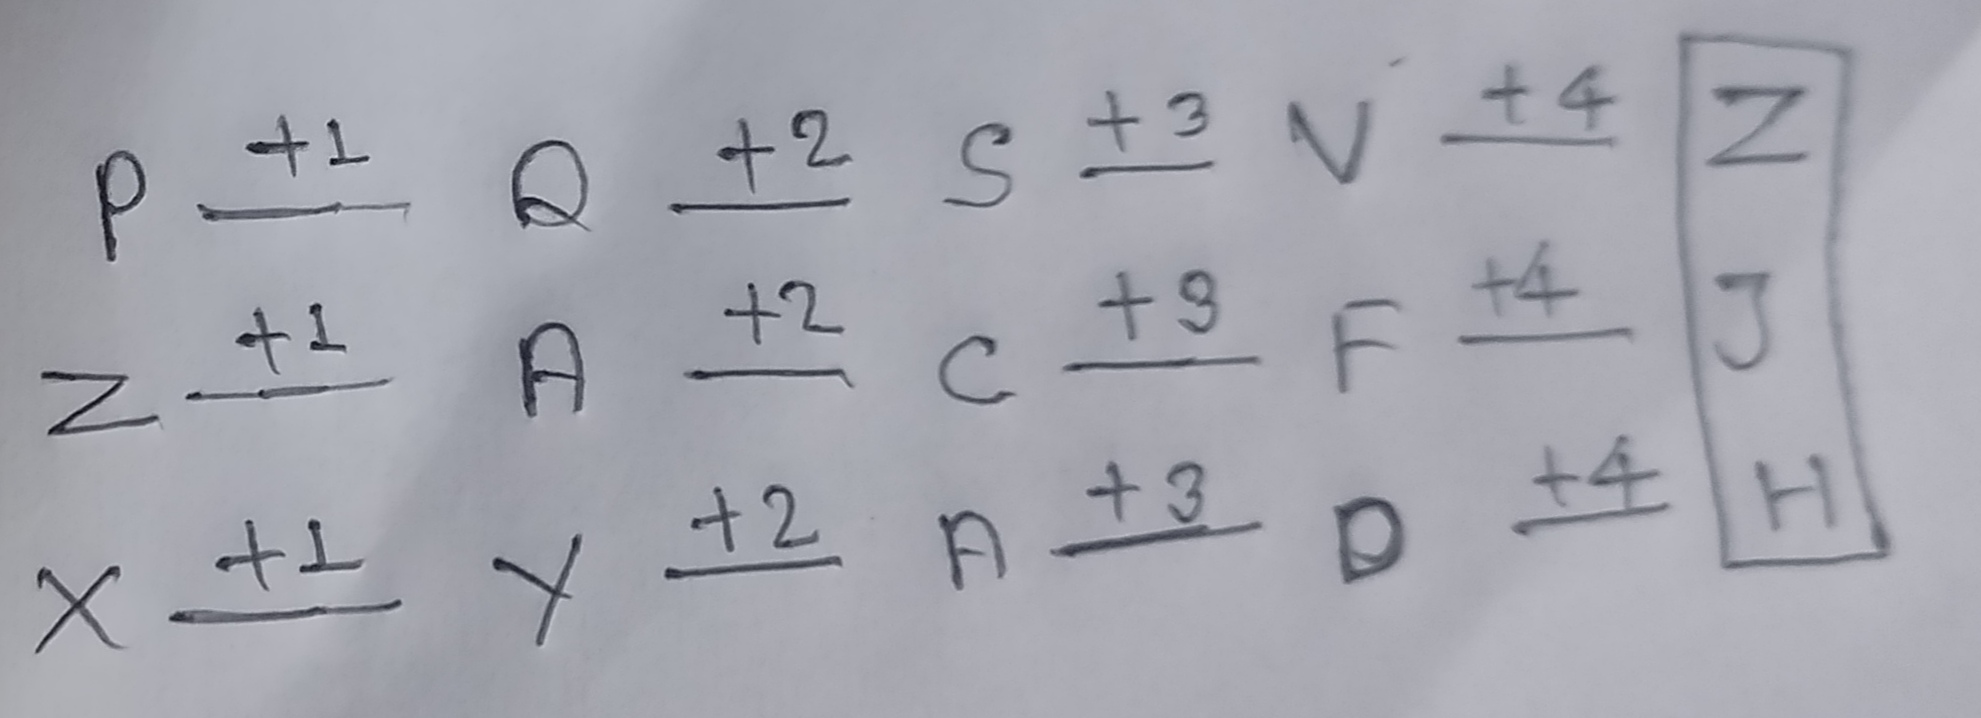 P +1 Q +2 S +3 V +4 Z
Z +1 A +2 C +3 F +4 J
X +1 Y +2 A +3 D +4 H